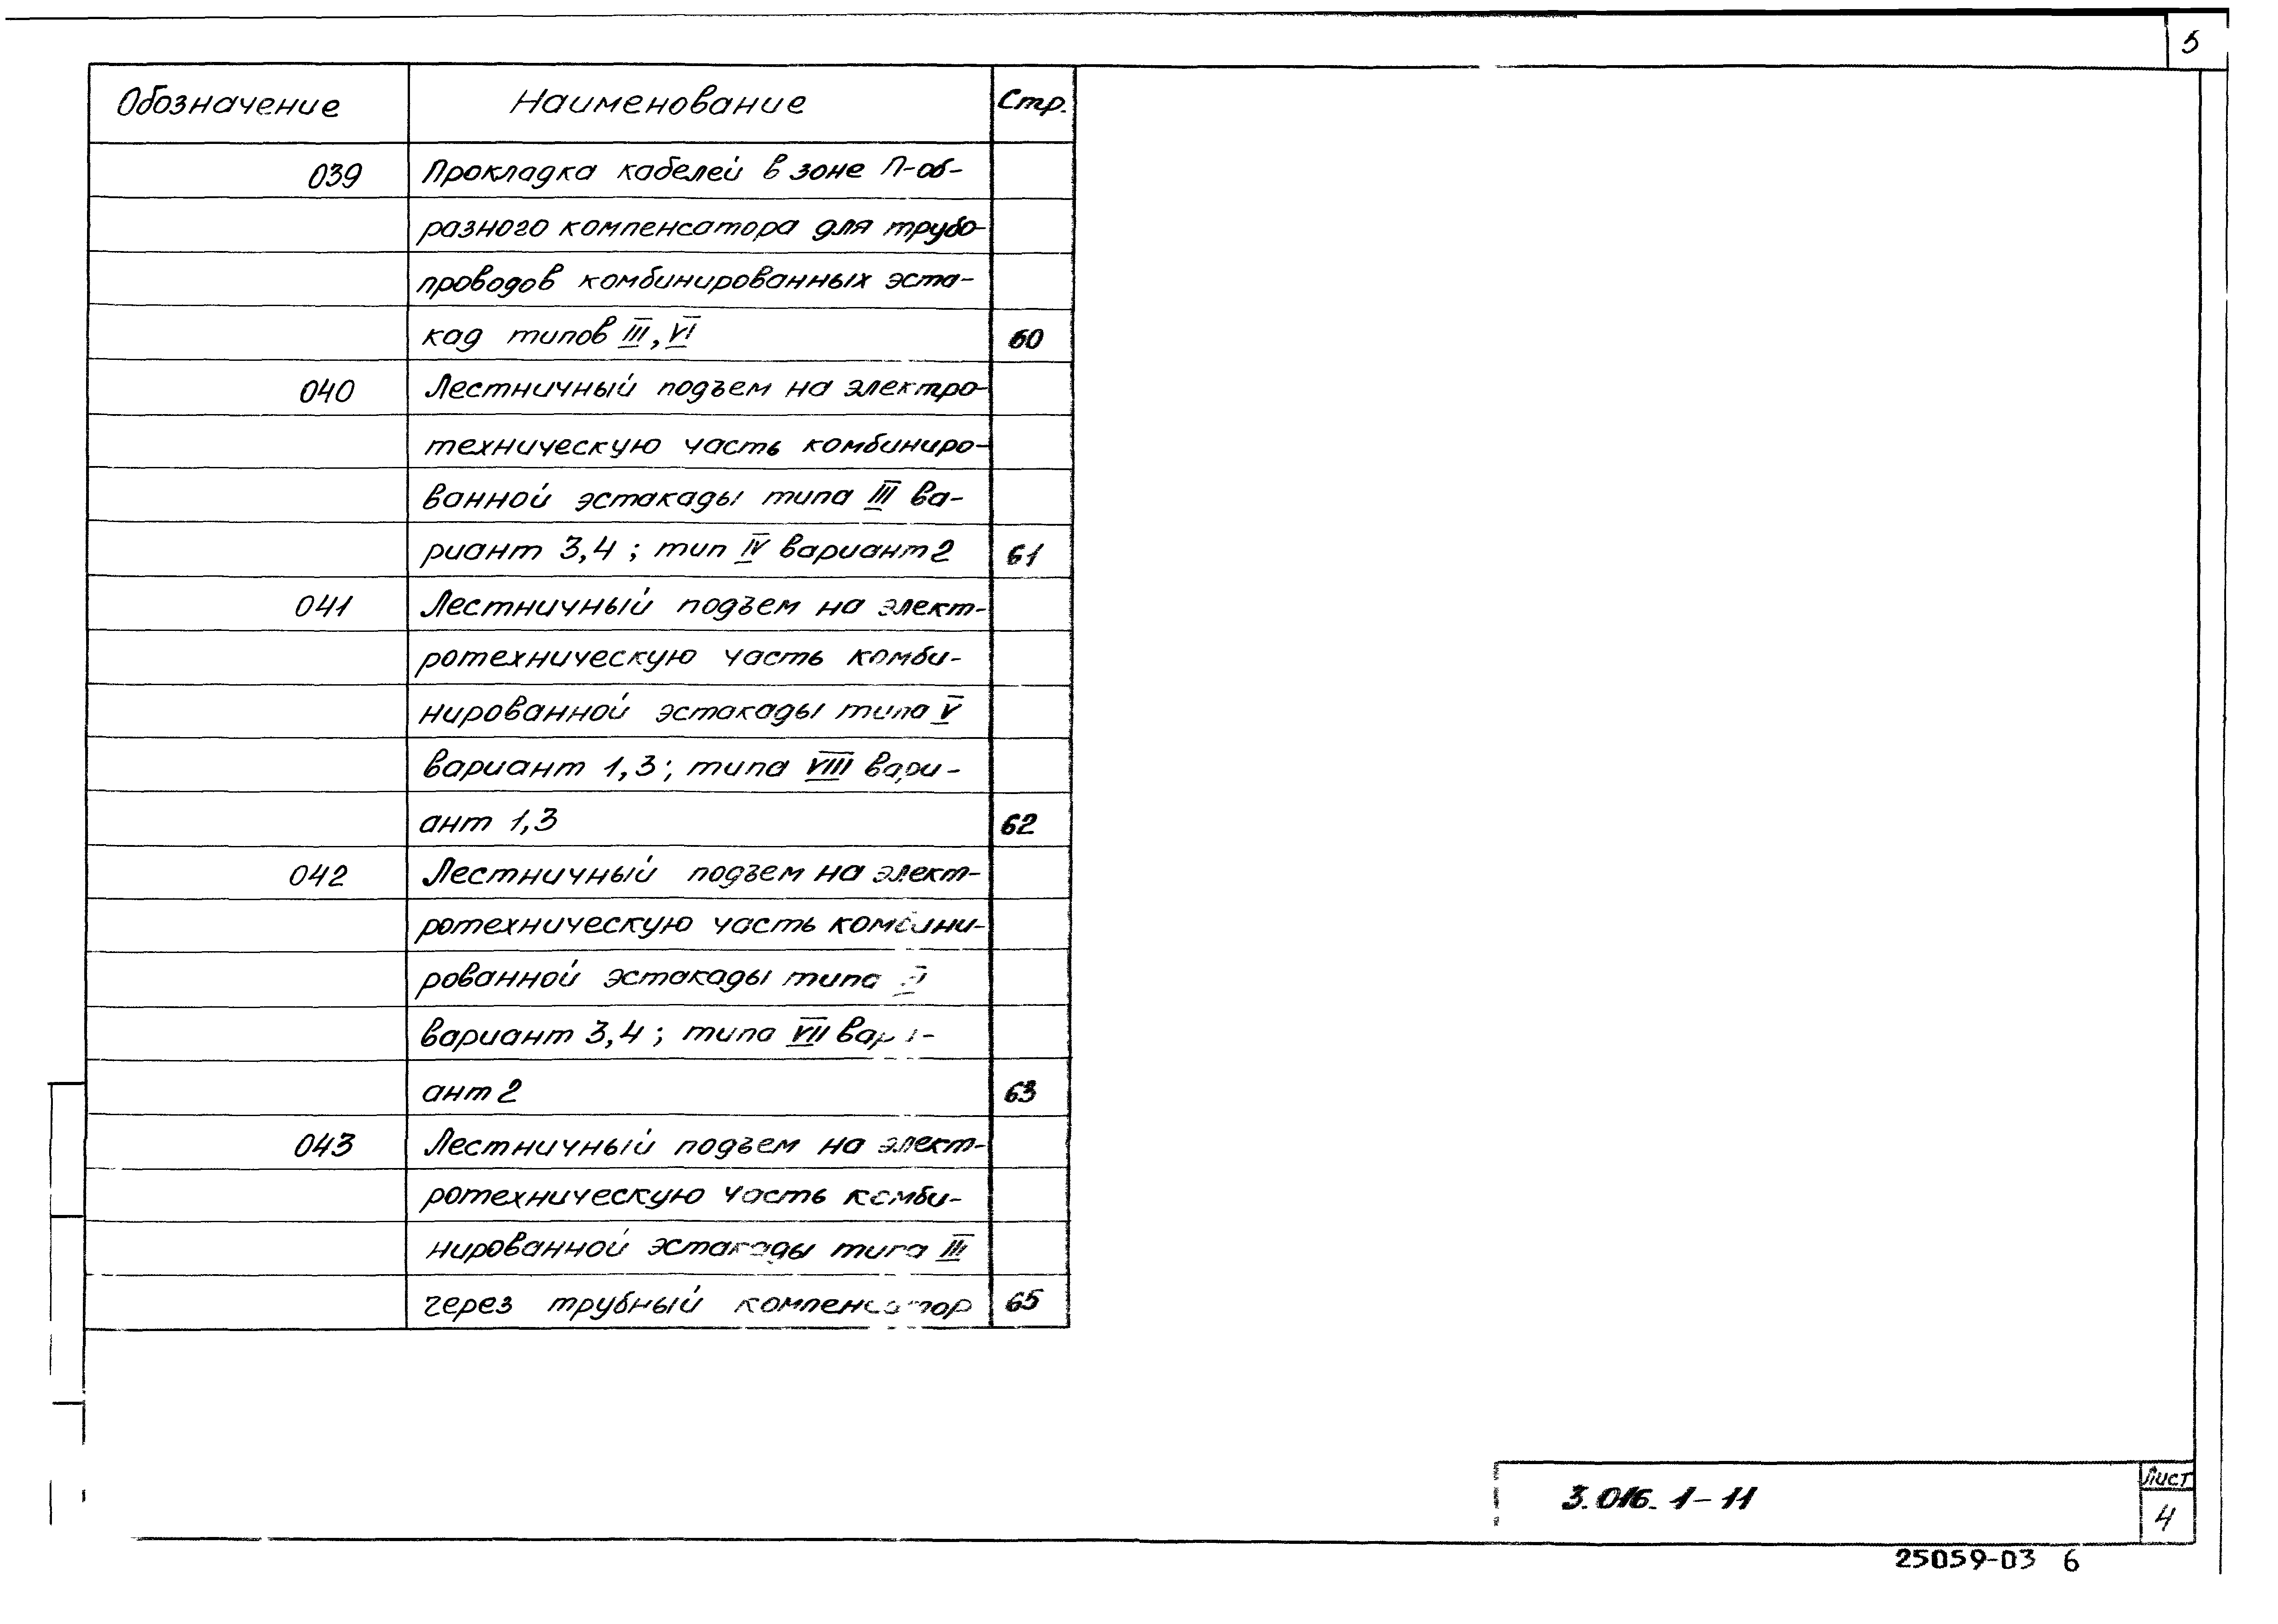 5
Обозначение Наименование Стр.
039 Прокладка кабелей в зоне П-об-
разного компенсатора для трубо-
проводов комбинированных эста-
кад типов III, VI 60
040 Лестничный подъем на электро-
техническую часть комбиниро-
ванной эстакады типа III ва-
риант 3,4; тип IV вариант 2 61
041 Лестничный подъем на элект-
ротехническую часть комби-
нированной эстакады типа V
вариант 1,3; типа VIII вари-
ант 1,3 62
042 Лестничный подъем на элект-
ротехническую часть комбини-
рованной эстакады типа
вариант 3,4; типа VII вари-
ант 2 63
043 Лестничный подъем на элект-
ротехническую часть комби-
нированной эстакады типа III
через трубный компенсатор 65
3.016.1-11
Лист
4
25059-03 6